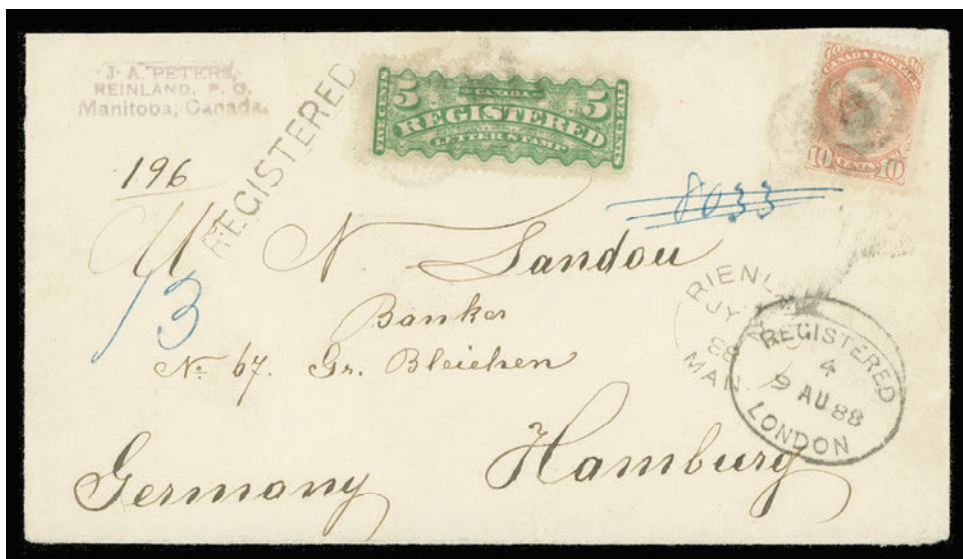 J. A. PETERS,
REINLAND, P. O.
Manitoba, Canada.
REGISTERED
FIVE CENTS
5
CANADA
5
REGISTERED
LETTER STAMP
FIVE CENTS
CANADA POSTAGE
10 CENTS 10
196
8033
N. Landou
13
Banker
No 67. Gr. Bleichen
Hamburg
Germany
RIENL
JY
88
MAN
REGISTERED
4
9 AU 88
LONDON